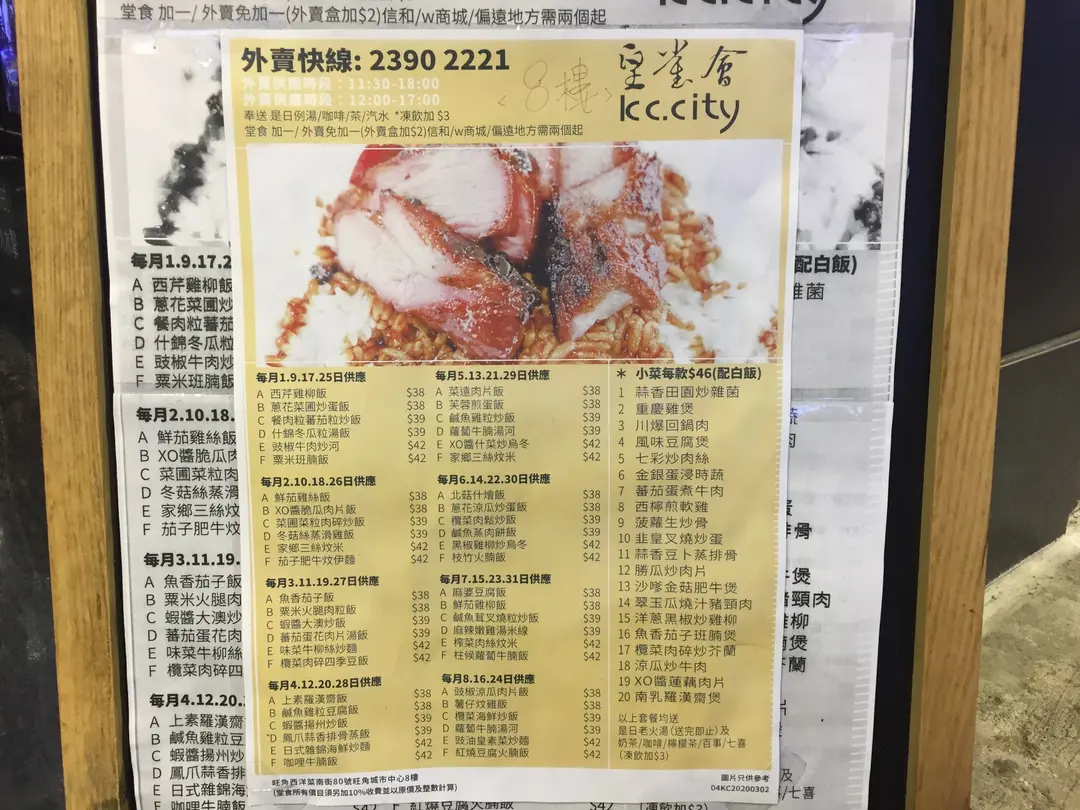 堂食 加一/ 外賣免加一(外賣盒加$2)信和/w商城/偏遠地方需兩個起
kc.city
外賣快線: 2390 2221
外賣供應時段：11:30-18:00
外賣供應時段：12:00-17:00
奉送 是日例湯/咖啡/茶/汽水 *凍飲加 $3
堂食 加一/ 外賣免加一(外賣盒加$2)信和/w商城/偏遠地方需兩個起
<8樓>
皇雀會
kc.city
每月1.9.17.25日供應
A 西芹雞柳飯 $38
B 蔥花菜圃炒蛋飯 $38
C 餐肉粒蕃茄粒炒飯 $39
D 什錦冬瓜粒湯飯 $39
E 豉椒牛肉炒河 $42
F 粟米班腩飯 $42
每月2.10.18.26日供應
A 鮮茄雞絲飯 $38
B XO醬脆瓜肉片飯 $38
C 菜圃菜粒肉碎炒飯 $39
D 冬菇絲蒸滑雞飯 $39
E 家鄉三絲炆米 $42
F 茄子肥牛炆伊麵 $42
每月3.11.19.27日供應
A 魚香茄子飯 $38
B 粟米火腿肉粒飯 $38
C 蝦醬大澳炒飯 $39
D 蕃茄蛋花肉片湯飯 $39
E 味菜牛柳絲炒麵 $42
F 欖菜肉碎四季豆飯 $42
每月4.12.20.28日供應
A 上素羅漢齋飯 $38
B 鹹魚雞粒豆腐飯 $38
C 蝦醬揚州炒飯 $39
*D 鳳爪蒜香排骨蒸飯 $39
E 日式雜錦海鮮炒麵 $42
F 咖喱牛腩飯 $42
每月5.13.21.29日供應
A 菜遠肉片飯 $38
B 芙蓉煎蛋飯 $38
C 鹹魚雞粒炒飯 $39
D 蘿蔔牛腩湯河 $39
E XO醬什菜炒烏冬 $42
F 家鄉三絲炆米 $42
每月6.14.22.30日供應
A 北菇什燴飯 $38
B 蔥花涼瓜炒蛋飯 $38
C 欖菜肉鬆炒飯 $39
D 鹹魚蒸肉餅飯 $39
E 黑椒雞柳炒烏冬 $42
F 枝竹火腩飯 $42
每月7.15.23.31日供應
A 麻婆豆腐飯 $38
B 鮮茄雞柳飯 $38
C 鹹魚茸叉燒粒炒飯 $39
D 麻辣嫩雞湯米線 $39
E 榨菜肉絲炆米 $42
F 柱候蘿蔔牛腩飯 $42
每月8.16.24日供應
A 豉椒涼瓜肉片飯 $38
B 薯仔炆雞飯 $38
C 欖菜海鮮炒飯 $39
D 蘿蔔牛腩湯河 $39
E 豉油皇素菜炒麵 $42
F 紅燒豆腐火腩飯 $42
＊ 小菜每款$46(配白飯)
1 蒜香田園炒雜菌
2 重慶雞煲
3 川爆回鍋肉
4 風味豆腐煲
5 七彩炒肉絲
6 金銀蛋浸時蔬
7 蕃茄蛋煮牛肉
8 西檸煎軟雞
9 菠蘿生炒骨
10 韭皇叉燒炒蛋
11 蒜香豆卜蒸排骨
12 勝瓜炒肉片
13 沙嗲金菇肥牛煲
14 翠玉瓜燒汁豬頸肉
15 洋蔥黑椒炒雞柳
16 魚香茄子班腩煲
17 欖菜肉碎炒芥蘭
18 涼瓜炒牛肉
19 XO醬蓮藕肉片
20 南乳羅漢齋煲
以上套餐均送
是日老火湯(送完即止)及
奶茶/咖啡/檸檬茶/百事/七喜
(凍飲加$3)
旺角西洋菜南街80號旺角城市中心8樓
(堂食所有價目須另加10%收費並以原價及整數計算)
圖片只供參考
04KC20200302
每月1.9.17.2
A 西芹雞柳飯
B 蔥花菜圃炒
C 餐肉粒蕃茄
D 什錦冬瓜粒
E 豉椒牛肉炒
F 粟米班腩飯
每月2.10.18.
A 鮮茄雞絲飯
B XO醬脆瓜肉
C 菜圃菜粒肉
D 冬菇絲蒸滑
E 家鄉三絲炆
F 茄子肥牛炆
每月3.11.19.
A 魚香茄子飯
B 粟米火腿肉
C 蝦醬大澳炒
D 蕃茄蛋花肉
E 味菜牛柳絲
F 欖菜肉碎四
每月4.12.20.
A 上素羅漢齋
B 鹹魚雞粒豆
C 蝦醬揚州炒
D 鳳爪蒜香排
E 日式雜錦海
F 咖喱牛腩飯 $42 F 紅燒豆腐火腩飯 $42 (凍飲加$3)
配白飯)
雜菌
肉
排骨
煲
豬頸肉
雞柳
腩煲
芥蘭
片
及
/七喜